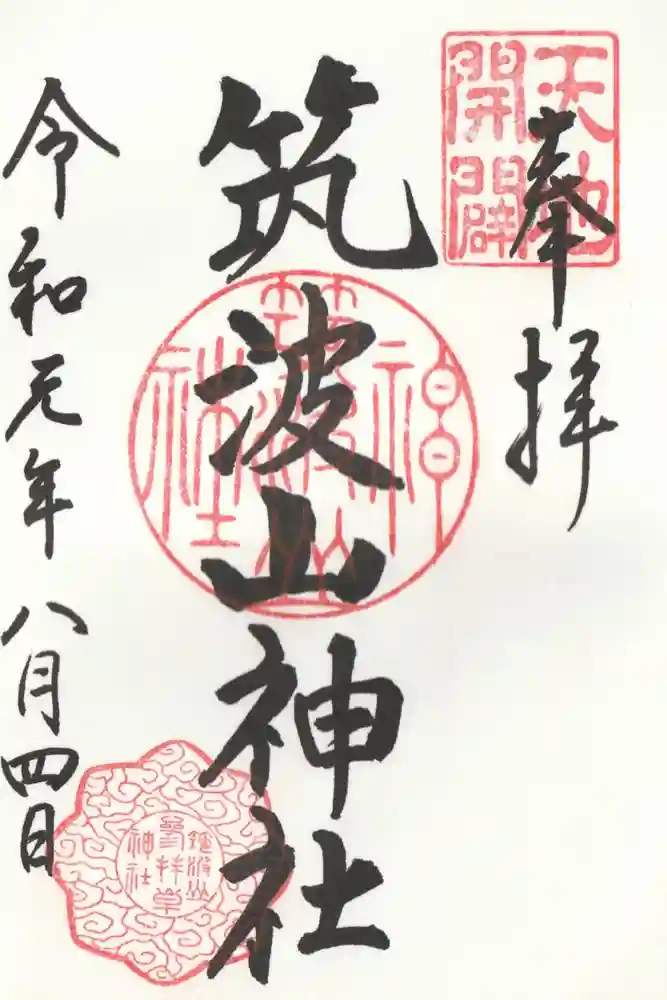 奉拝
天地
開闢
筑波山神社
筑波山
神社
令和元年八月四日
筑波山
参拝章
神社